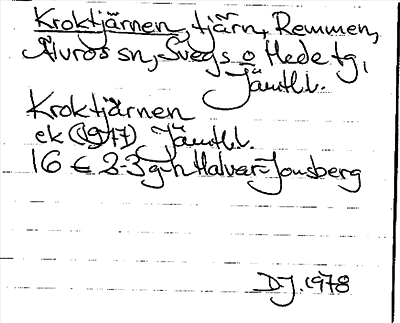 Kroktjärnen, tjärn, Remmen,
Älvros sn, Svegs o Hede tg,
Jämtl.l.
Kroktjärnen
ek (1977) Jämtl.l.
16 E 2-3 g-h Halvar-Jonsberg
DJ. 1978